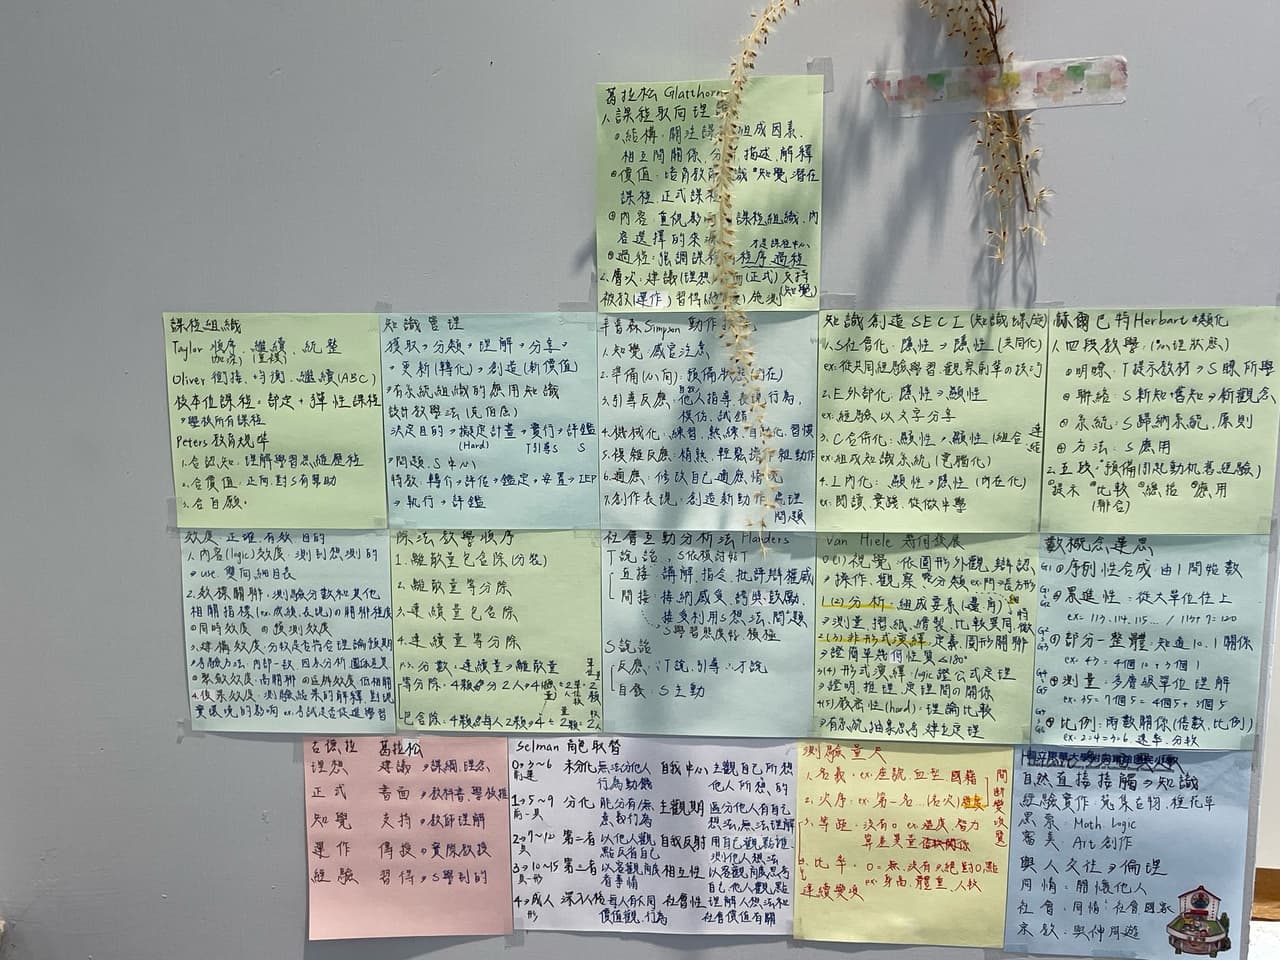 葛拉松 Glatthorn
1. 課程取向理
①結構:關注課 組成因素、
相互間關係,分 描述、解釋
②價值:培育教 識,知覺潛在
課程、正式課程
③內容:直視影响 課程組織、內
容選擇的來源
④過程:強調課程 程序過程
2. 層次:建議(理想) 面(正式)支持
(知覺)
被教(運作)習得( )施測
課程組織
Taylor 順序 繼續 統整
Oliver 銜接、均衡、繼續(ABC)
校本位課程=部定+彈性課程
→學校所有課程
Peters 教育規準
1. 合認知:理解學習思維歷程
2. 合價值:正向、對S有幫助
3. 合自願:
知識管理
獲取→分類→理解→分享→
→更新(轉化)→創造(新價值)
→有系統組織的應用知識
設計教學法(克伯屈)
決定目的→擬定計畫→實行→評鑑
(Hard) T引導S S
→問題、S中心
特教:轉介→評估→鑑定→安置→IEP
→執行→評鑑
辛普森Simpson 動作技
1. 知覺:感官注意
2. 準備(心向):預備狀態(內在)
3. 引導反應:他人指導表現行為,
模仿、試錯
4. 機械化:練習、熟練、自動化、習慣
5. 複雜反應:精熟,輕鬆 動作
6. 適應:修改自己適應情境
7. 創作表現:創造新動作處理
問題
知識創造SECI(知識螺旋)
1. S社會化:隱性→隱性(共同化)
ex:從共同經驗學習,觀察前輩的技巧
2. E外部化:隱性→顯性
ex:經驗以文字分享
3. C合併化:顯性→顯性(組合連結
ex:組成知識系統(電腦化)
4. I內化:顯性→隱性(內在化)
ex:閱讀、實踐、從做中學
赫爾巴特Herbart 類化
1. 四段教學:(心理狀態)
①明瞭:T提示教材→S瞭所學
②聯絡:S新知舊知→新觀念
③系統:S歸納系統、原則
④方法:S應用
2. 五段:①預備(引起動機舊經驗)
②提示 ③比較 ④總括 ⑤應用
(聯合)
效度 正確、有效 目的
1. 內容(logic)效度:測到想測的
→use 雙向細目表
2. 效標關聯:測驗分數和其他
相關指標(ex.成績、表現)的關聯程度
①同時效度 ②預測效度
3. 建構效度:分數是否符合理論預期
4. 後果效度:測驗結果的解釋,對現
實環境的影响 ex:考試是否促進學習
除法教學順序
1. 離散量包含除(分裝)
2. 離散量等分除
3. 連續量包含除
4. 連續量等分除
P.S. 分數:連續量→離散量
社會互動分析法 Flanders
T說話 :S依模討好T
直接:講解、指定、批評辯權威
間接:接納感受、讚與鼓勵、
接受利用S想法、問題
→S學習態度好、積極
S說話
反應:T說,引導,才說
自發:S主動
van Hiele 幾何發展
0(1)視覺:依圖形外觀、辨認、
→操作、觀察
1(2)分析:組成要素(邊角)
→測量、摺紙、繪製、比較異同、特徵
2(3)非形式演繹:定義、圖形關聯
→證簡單幾何性質
3(4)形式演繹:logic證公式定理
→證明、推理、定理間の關係
4(5)嚴密性(hard):理論比較
→有系統、抽象思考、建立定理
數概念建思
①序列性合成:由1開始數
②累進性:從大單位往上
ex=113.114.115…/119+?=120
③部分-整體:知道10.1關係
ex.43=4個10+3個1
④測量:多層級單位理解
⑤比例:兩數關係(倍數、比例)
ex=2:4=3:6 速率、分數
古德拉 葛拉松
理想 建議→課綱、理念
正式 書面→教科書、學校推
知覺 支持→教師理解
運作 傳授→實際教授
經驗 習得→S學到的
Selman 角色取替
0→3~6 未分化 無法分他人 自我中心 主觀自己所想
行為動機 他人所想的
1→5~9 分化 能分有/無 主觀期 區分他人有自己
意教行為 想法無法理解
2→7~12 第二者 以他人觀 自我反射 用自己觀點推
點反省自己 測他人想法
3→10~15 第三者 以客觀角度 相互性 以客觀角度思考
看事情 自己他人觀點
4→成人 深入 每人有不同 社會性 理解人想法和
價值觀、行為 社會價值有關
測驗量尺
1. 名義:ex:座號、血型、國籍
2. 次序:ex:第一名…(名次)
3. 等距:沒有0 ex:溫度、智力
4. 比率:0=無、沒有→絕對0點
ex:身高、體重、人數
連續變項
間斷變項
自然直接接觸→知識
經驗實作:蒐集石頭、種花草
思索:Math logic
審美:Art創作
與人交往→倫理
同情:關懷他人
社會:同情→社會國家
宗教:與神同遊